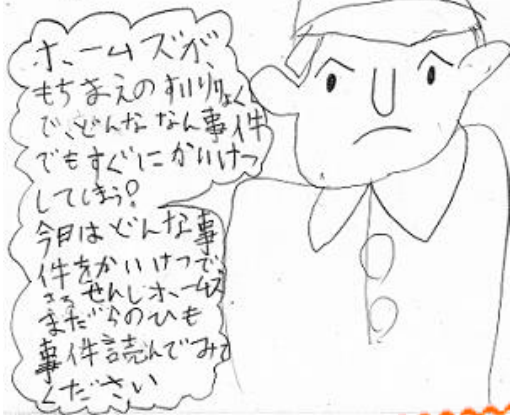 ホームズが、
もちまえのすいりりょく
で、どんななん事件
でもすぐにかいけつ
してしまう?
今日はどんな事
件をかいけつで
きる せんじホームズ
まだらのひも
事件読んでみて
ください